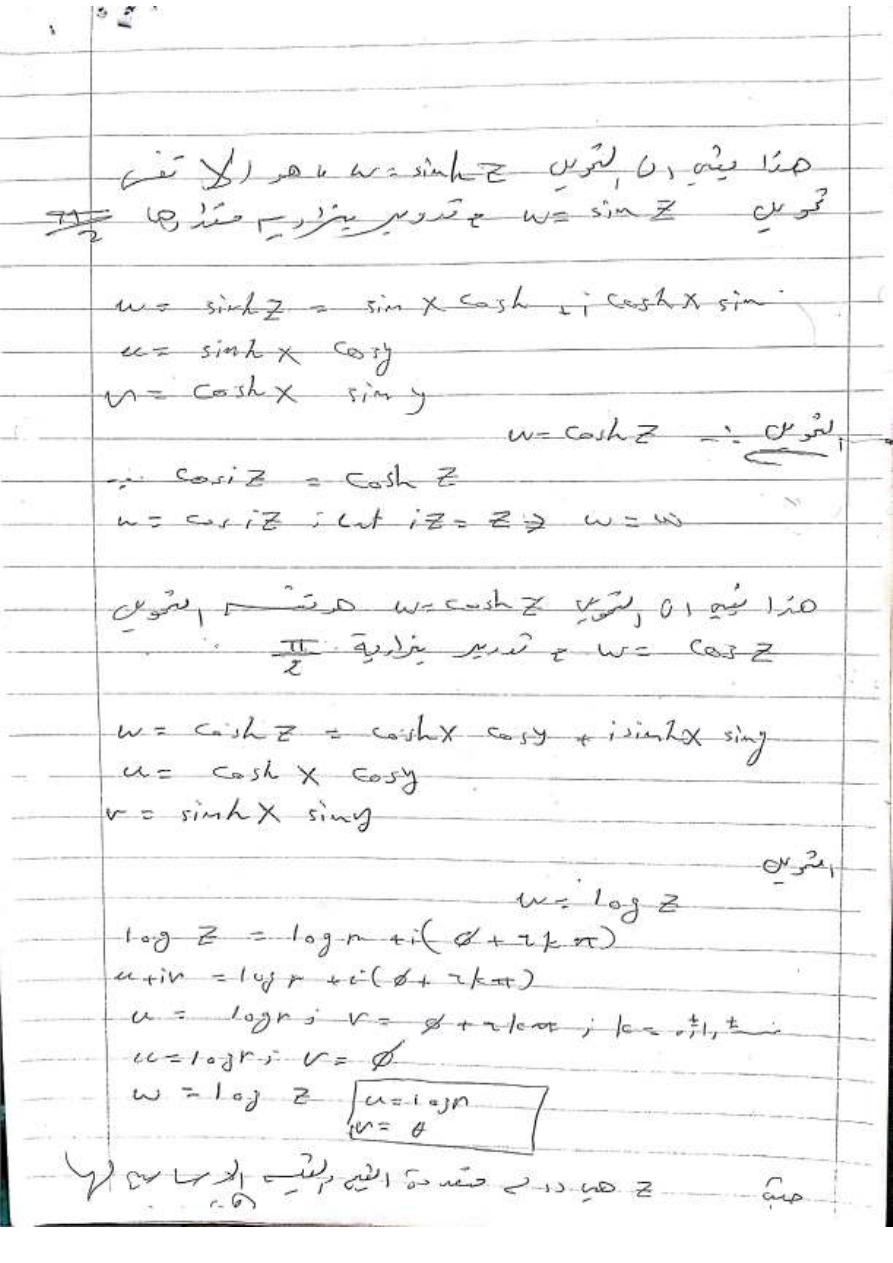 هذا يعني ان التحويل w = sinh Z ما هو الا نفس
تحويل w = sin Z مع تدوير بزاوية مقدارها π/2
w = sinh Z = sin X cosh + i cosh X sin
u = sinh x cosy
v = cosh X sin y
التحويل :- w = cosh Z
∵ Cos i Z = Cosh Z
w = cos i Z ; Let i Z = Z ⇒ w = w
هذا يعني ان التحويل w = cosh Z هو التحويل
w = Cos Z مع تدوير بزاوية π/2
w = cosh Z = cosh X cosy + i sinh X siny
u = cosh X Cosy
v = sinh X siny
التحويل
w = log Z
log Z = log r + i( ø + 2kπ)
u + iv = log r + i(ø + 2kπ)
u = log r ; v = ø + 2kπ ; k =
u = log r ; v = ø
w = log Z u = log r
v = θ
حيث Z هي دالة متعددة القيم لها